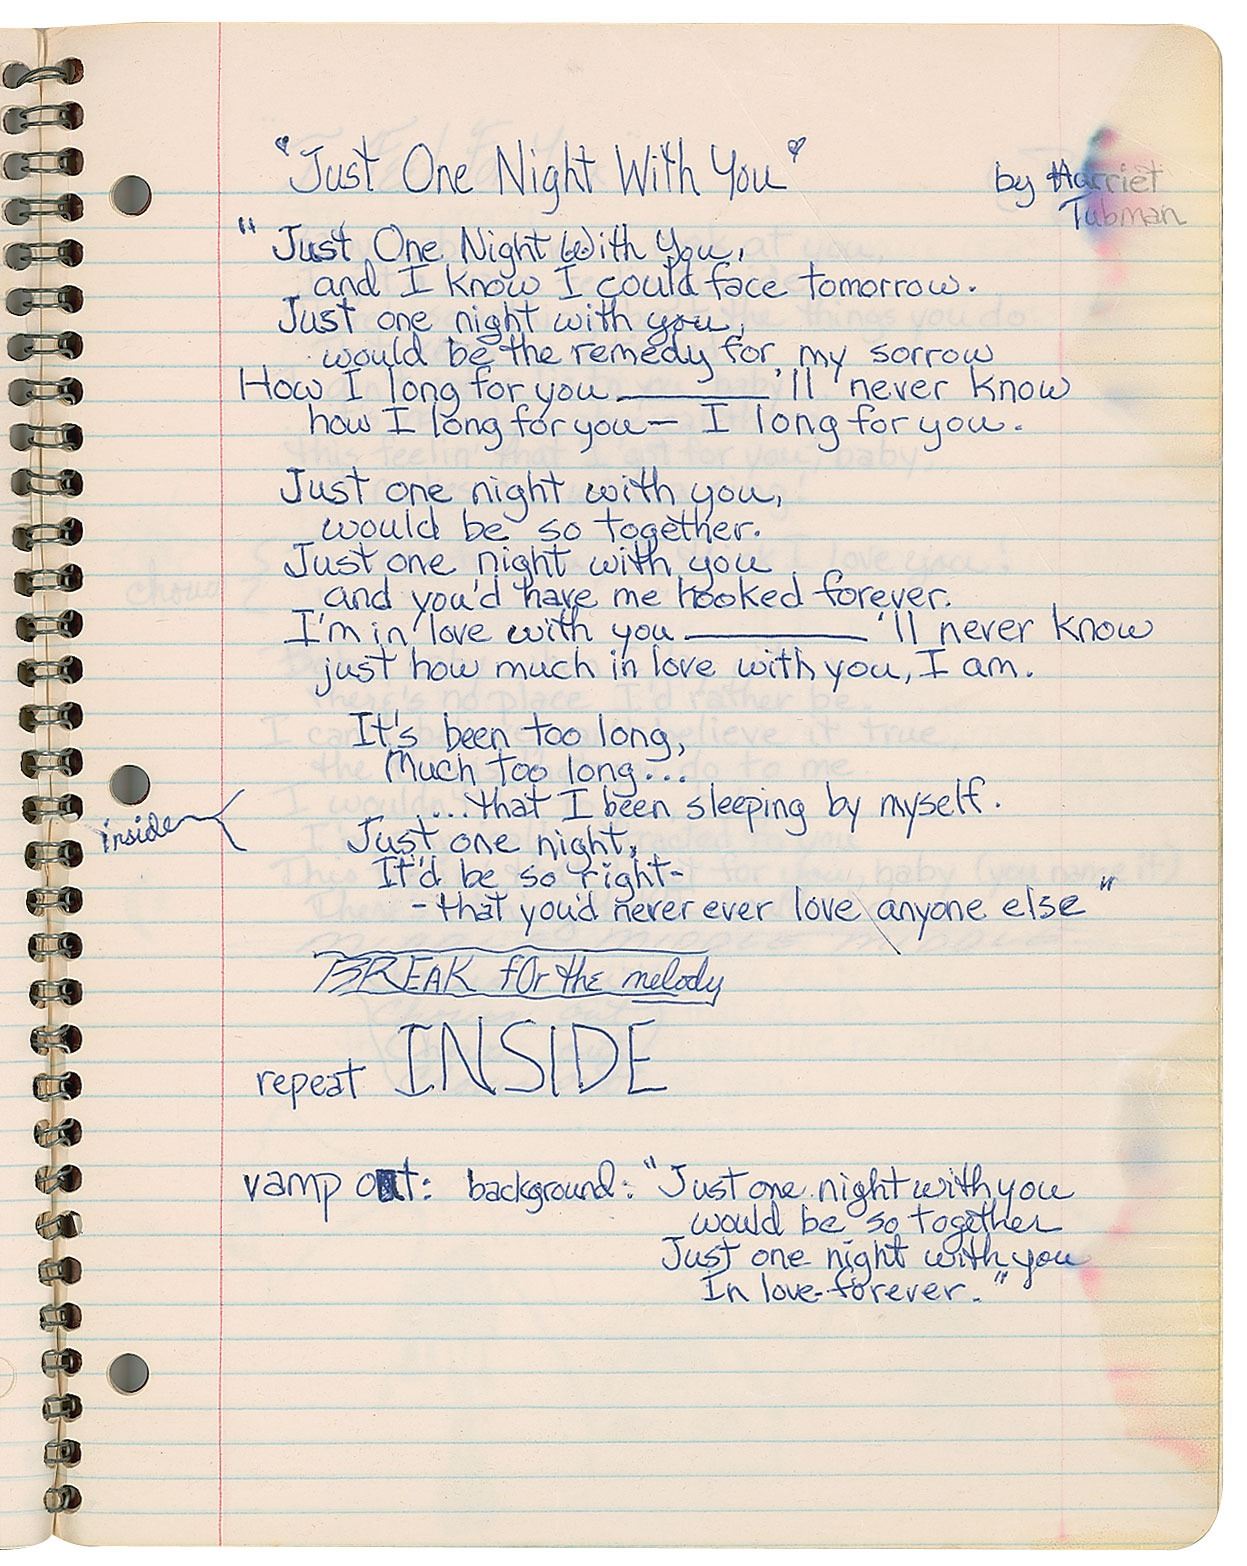 "Just One Night With You"
by Harriet
Tubman
"Just One Night With You,
and I know I could face tomorrow.
Just one night with you,
would be the remedy for my sorrow
How I long for you ________'ll never know
how I long for you— I long for you.
Just one night with you,
would be so together.
Just one night with you
and you'd have me hooked forever.
I'm in love with you ________'ll never know
just how much in love with you, I am.
It's been too long,
Much too long...
...that I been sleeping by myself.
inside
Just one night,
It'd be so right-
-that you'd never ever love anyone else"
BREAK for the melody
repeat INSIDE
vamp out: background: "Just one night with you
would be so together
Just one night with you
In love-forever."